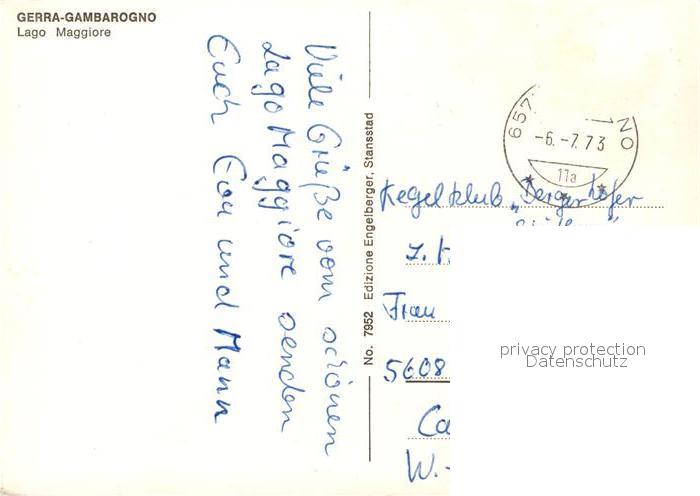 GERRA-GAMBAROGNO
Lago Maggiore
Viele Grüße vom schönen
Lago Maggiore senden
Euch Eva und Mann
No. 7952 Edizione Engelberger, Stansstad
657
NO
-6.-7.73
11a
Kegelklub „Bergerhofer
z. H.
Frau
5608
W.-
privacy protection
Datenschutz